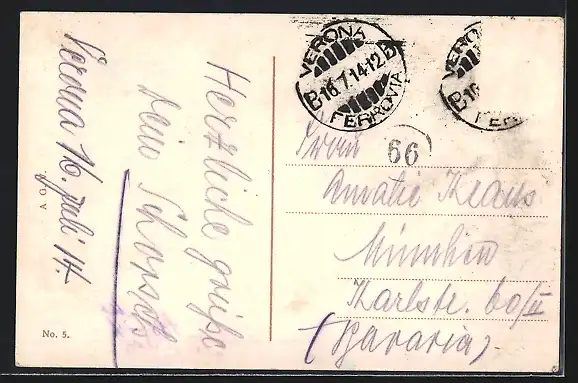 Verona 16. Juli 14.
Herzliche Grüße
Dein Schorsch
No. 5.
VERONA
B 16.7.14-12 B
FERROVIA
VERO
B 16
FER
66
Frau
Amalie Kraus
München
Karlstr. 60/II
(Bavaria)